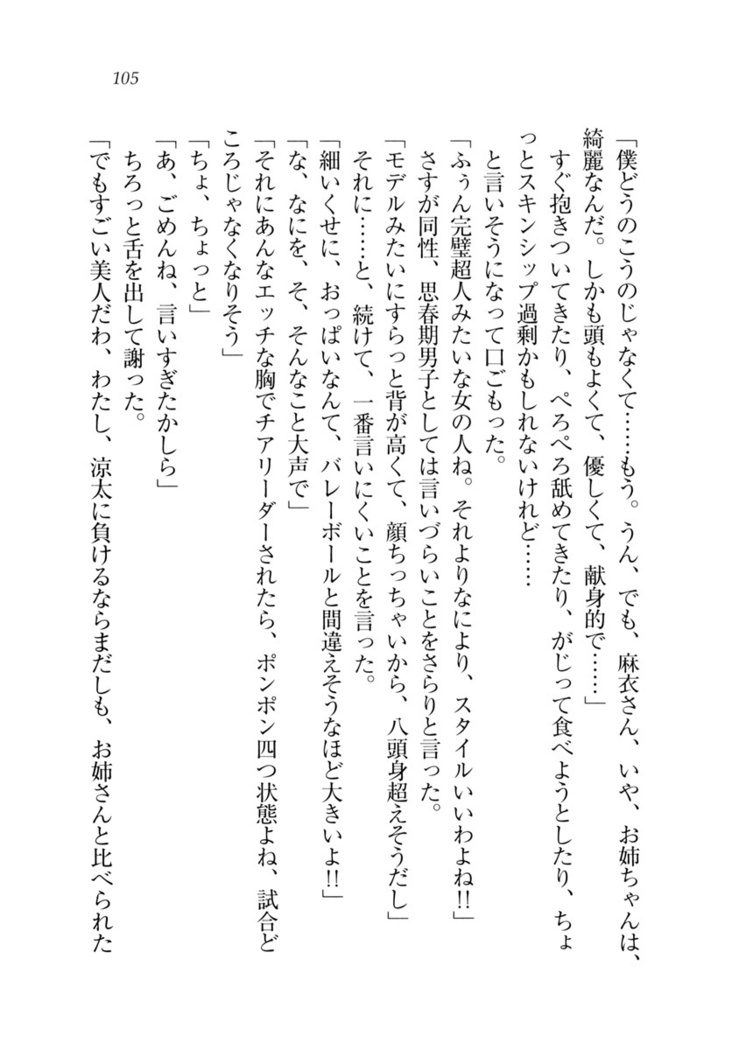 105
「僕どうのこうのじゃなくて……もう。うん、でも、麻衣さん、いや、お姉ちゃんは、
綺麗なんだ。しかも頭もよくて、優しくて、献身的で……」
すぐ抱きついてきたり、ぺろぺろ舐めてきたり、がじって食べようとしたり、ちょ
っとスキンシップ過剰かもしれないけれど……
と言いそうになって口ごもった。
「ふぅん完璧超人みたいな女の人ね。それよりなにより、スタイルいいわよね!!」
さすが同性、思春期男子としては言いづらいことをさらりと言った。
「モデルみたいにすらっと背が高くて、顔ちっちゃいから、八頭身超えそうだし」
それに……と、続けて、一番言いにくいことを言った。
「細いくせに、おっぱいなんて、バレーボールと間違えそうなほど大きいよ!!」
「な、なにを、そ、そんなこと大声で」
「それにあんなエッチな胸でチアリーダーされたら、ポンポン四つ状態よね、試合ど
ころじゃなくなりそう」
「ちょ、ちょっと」
「あ、ごめんね、言いすぎたかしら」
ちろっと舌を出して謝った。
「でもすごい美人だわ、わたし、涼太に負けるならまだしも、お姉さんと比べられた